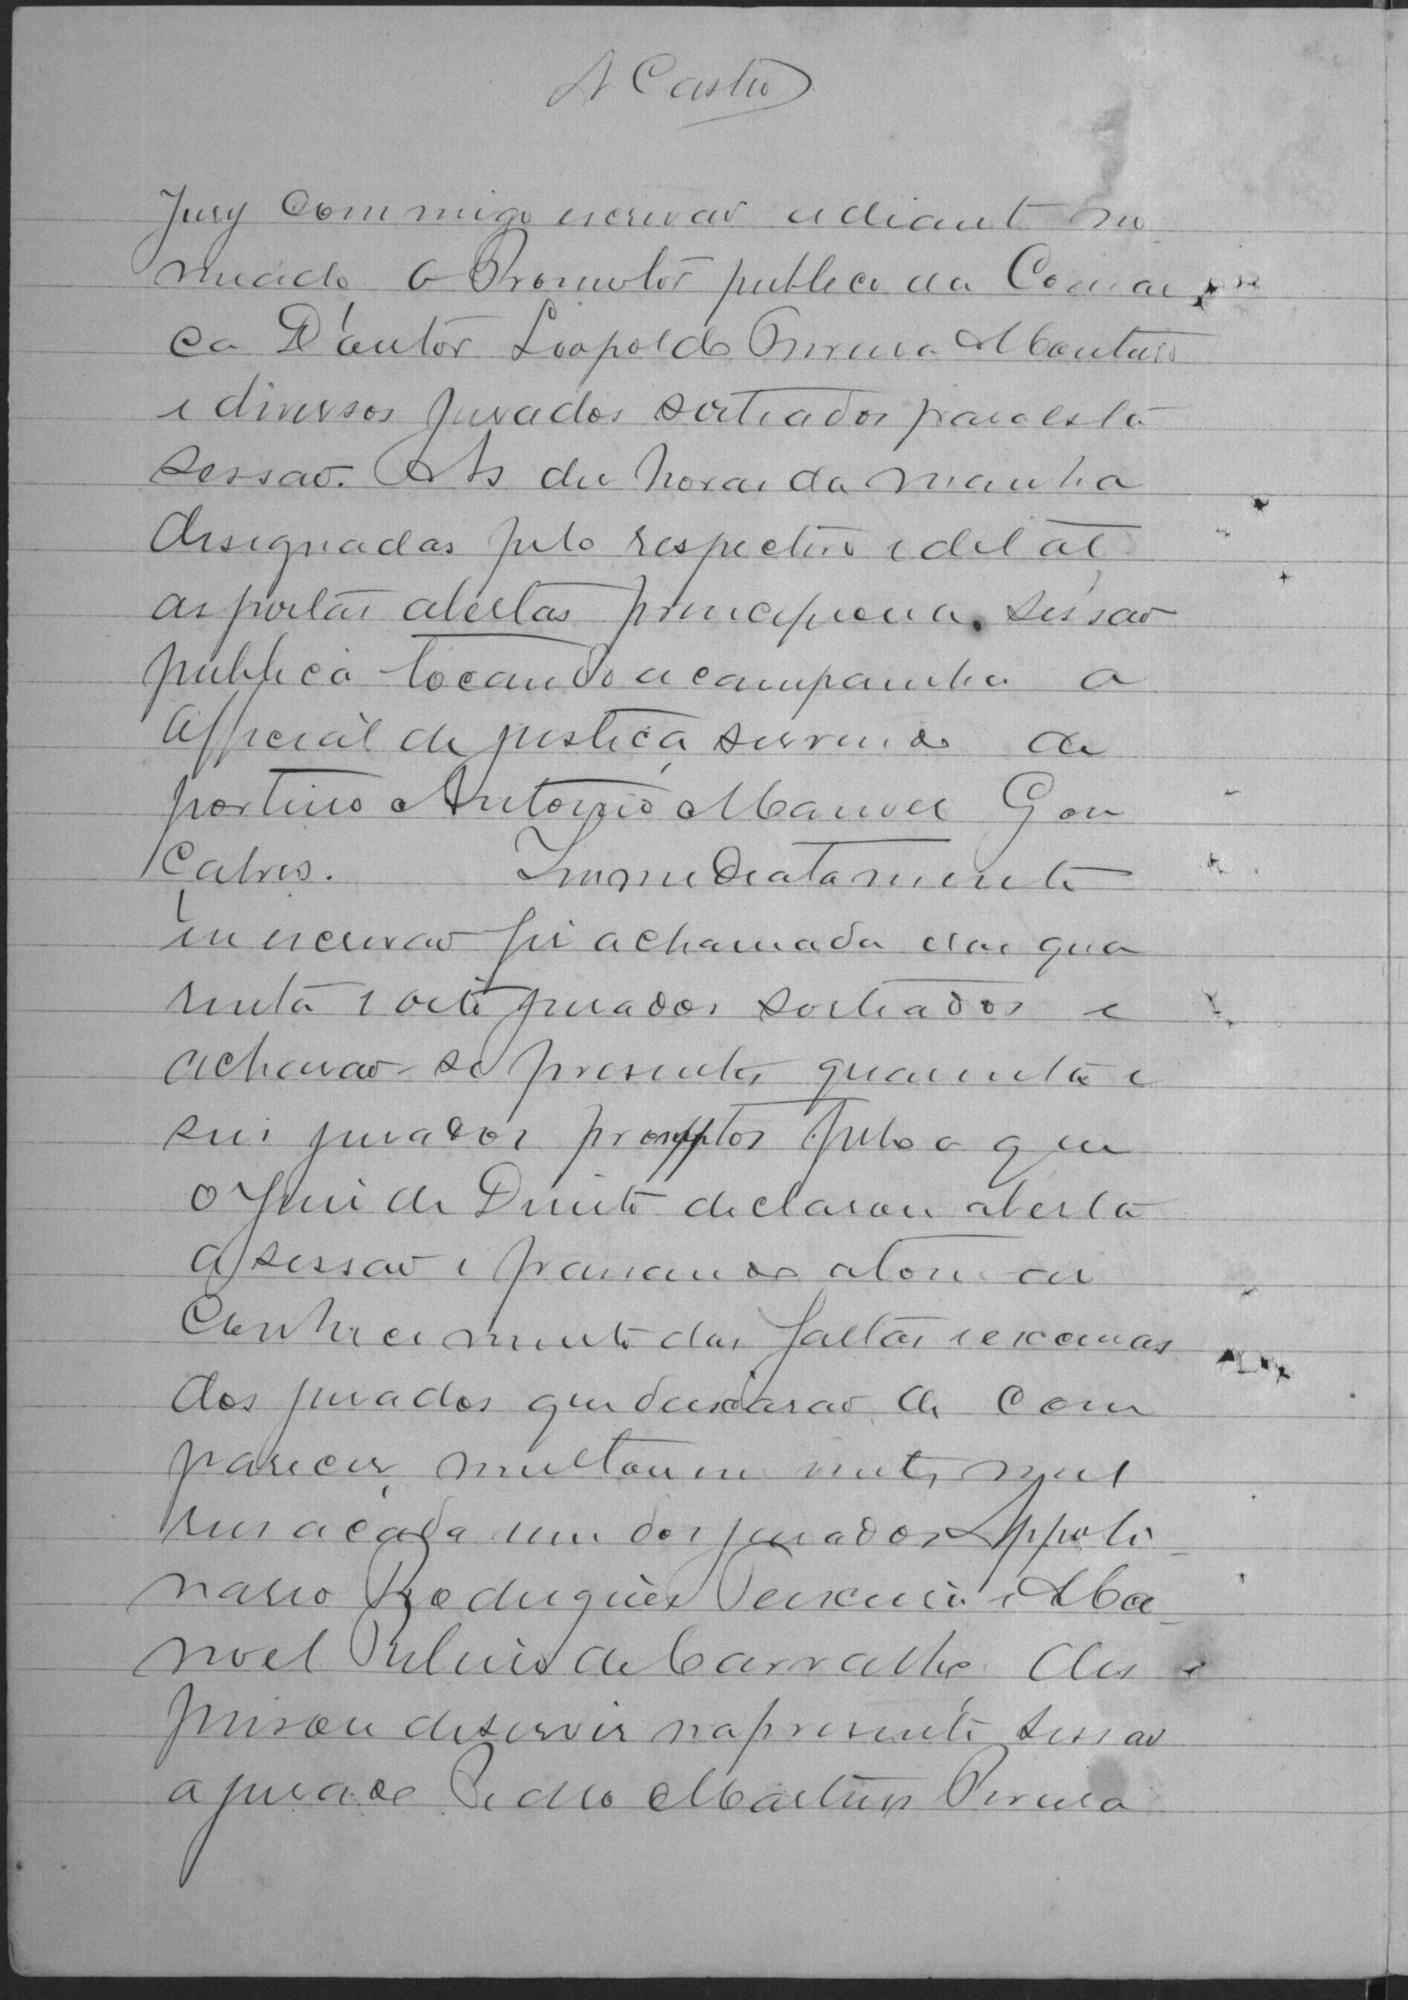 A Castro
Jury commigo escrivão adiante no
meado o Promotor publico da Comar
ca Doutor Leopoldo Pereira Montei
e diversos jurados sorteados para esta
sessão. As des horas da manha
designadas pelo respectivo edital
as portas abertas principiou a sessao
publica tocando a campanha o
official de justiça servindo de
porteiro Antonio Manoel Gon
calves. Immediatamente
eu escrivão fiz a chamada dos qua
renta e oito jurados sorteados e
acharao-se presentes quarenta e
seis jurados promptos pelo o que
o Juiz de Direito declarou aberta
a sessão e passando a tomar
conhecimento das faltas e excusas
dos jurados que deixarão de com
parecer, multou em vinte mil
reis a cada um dos jurados Appoli
nario Rodrigues Teixeira e Ma
noel de Carvalho. Dis
pensou de servir na presente sessão
o jurado Pedro Martins Pereira